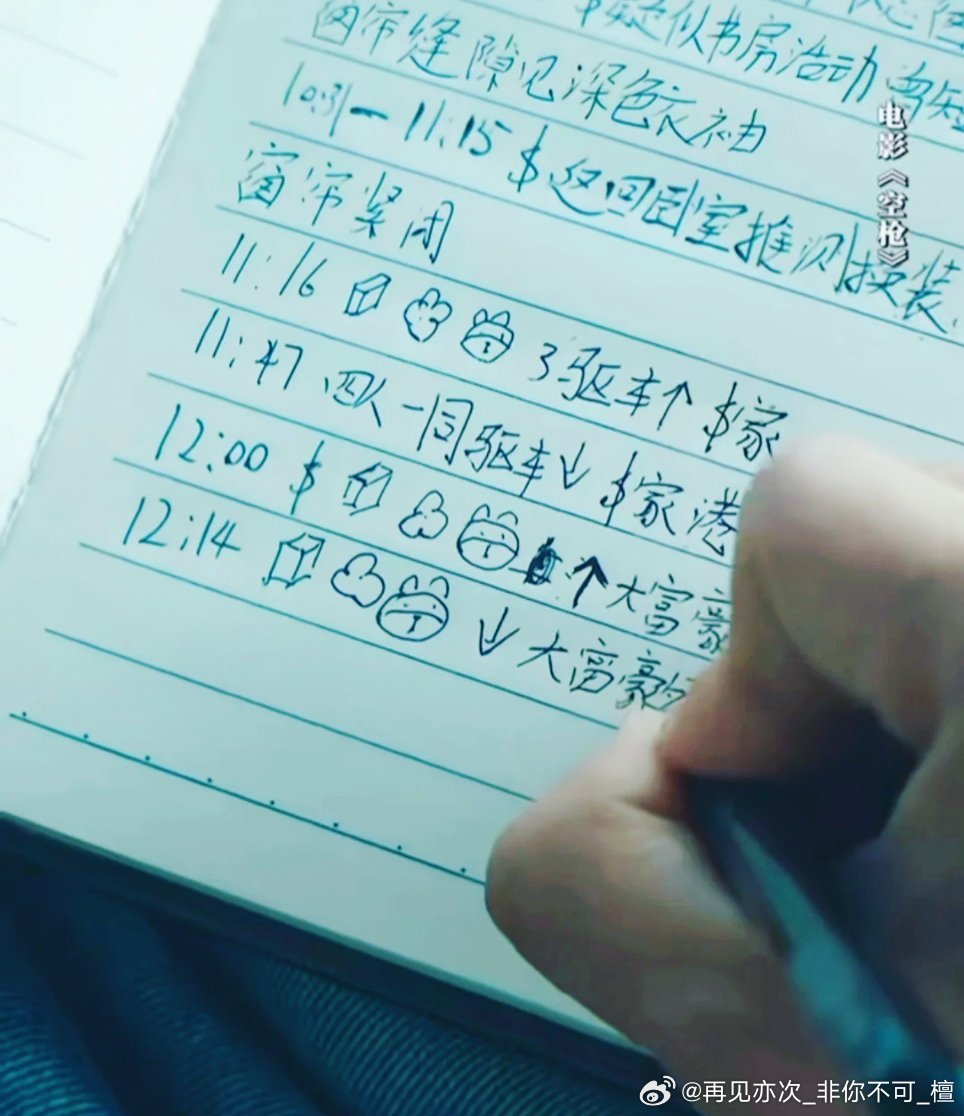 $疑似书房活动
窗帘缝隙见深色衣袖
10:31-11:15 $返回卧室推测换装
窗帘紧闭
11:16 3驱车↑ $家
11:47 四人一同驱车↓ $家港
12:00 $ ↑大富豪
12:14 ↓大富豪
电影《空枪》
@再见亦次_非你不可_檀